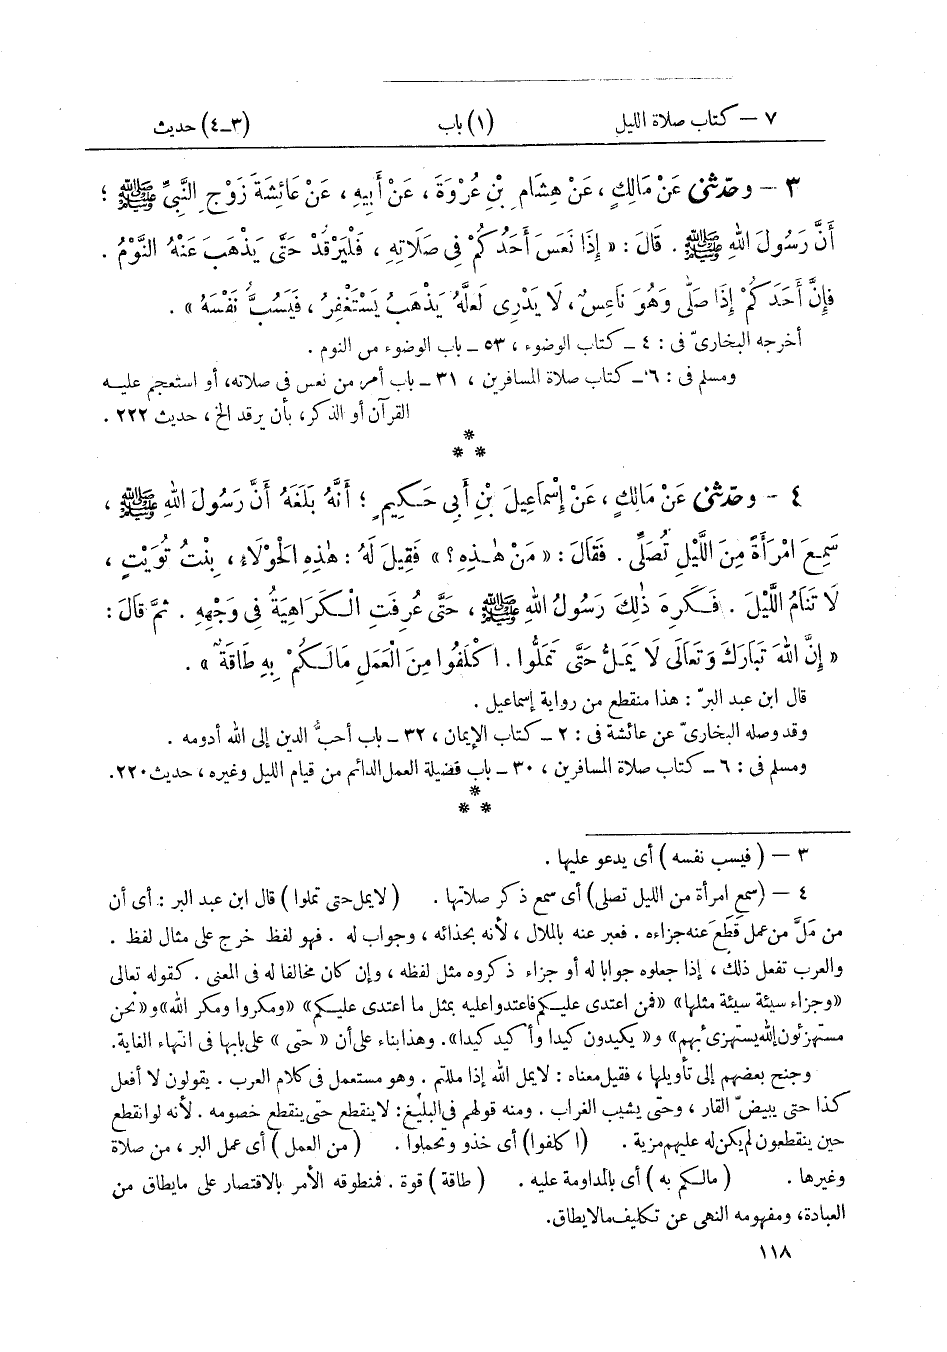 ٧ – كتاب صلاة الليل (١) باب (٣–٤) حديث
٣ – وحدّثنى عَنْ مَالِكٍ ، عَنْ هِشَامِ بْنِ عُرْوَةَ ، عَنْ أَبِيهِ ، عَنْ عَائِشَةَ زَوْجِ النَّبِيِّ ﷺ ؛
أَنَّ رَسُولَ اللهِ ﷺ . قَالَ : « إِذَا نَعَسَ أَحَدُكُمْ فِى صَلَاتِهِ ، فَلْيَرْقُدْ حَتَّى يَذْهَبَ عَنْهُ النَّوْمُ .
فَإِنَّ أَحَدَكُمْ إِذَا صَلَّى وَهُوَ نَاعِسٌ ، لَا يَدْرِى لَعَلَّهُ يَذْهَبُ يَسْتَغْفِرُ ، فَيَسُبُّ نَفْسَهُ » .
أخرجه البخارىّ فى : ٤ – كتاب الوضوء ، ٥٣ – باب الوضوء من النوم .
ومسلم فى : ٦ – كتاب صلاة المسافرين ، ٣١ – باب أمر من نعس فى صلاته، أو استعجم عليه
القرآن أو الذكر، بأن يرقد الخ ، حديث ٢٢٢ .
*
* *
٤ - وحدّثنى عَنْ مَالِكٍ ، عَنْ إِسْمَاعِيلَ بْنِ أَبِى حَكِيمٍ ؛ أَنَّهُ بَلَغَهُ أَنَّ رَسُولَ اللهِ ﷺ ،
سَمِعَ امْرَأَةً مِنَ اللَّيْلِ تُصَلِّى . فَقَالَ : « مَنْ هٰذِهِ ؟ » فَقِيلَ لَهُ : هٰذِهِ الْحَوْلَاءُ ، بِنْتُ تُوَيْتٍ ،
لَا تَنَامُ اللَّيْلَ . فَكَرِهَ ذٰلِكَ رَسُولُ اللهِ ﷺ ، حَتَّى عُرِفَتِ الْكَرَاهِيَةُ فِى وَجْهِهِ . ثُمَّ قَالَ :
« إِنَّ اللهَ تَبَارَكَ وَتَعَالَى لَا يَمَلُّ حَتَّى تَمَلُّوا . اكْلَفُوا مِنَ الْعَمَلِ مَا لَكُمْ بِهِ طَاقَةٌ » .
قال ابن عبد البرّ : هذا منقطع من رواية إسماعيل .
وقد وصله البخارىّ عن عائشة فى : ٢ – كتاب الإيمان ، ٣٢ – باب أحبُّ الدين إلى الله أدومه .
ومسلم فى : ٦ – كتاب صلاة المسافرين ، ٣٠ – باب فضيلة العمل الدائم من قيام الليل وغيره ، حديث ٢٢٠.
*
* *
٣ – ( فيسب نفسه ) أى يدعو عليها .
٤ – (سمع امرأة من الليل تصلى) أى سمع ذكر صلاتها . ( لا يمل حتى تملوا ) قال ابن عبد البر : أى أن
من مَلَّ من عمل قَطَعَ عنه جزاءه . فعبر عنه بالملال ، لأنه بحذائه ، وجواب له . فهو لفظ خرج على مثال لفظ .
والعرب تفعل ذلك ، إذا جعلوه جوابا له أو جزاء ذكروه مثل لفظه ، وإن كان مخالفا له فى المعنى . كقوله تعالى
«وجزاء سيئة سيئة مثلها» «فمن اعتدى عليكم فاعتدوا عليه بمثل ما اعتدى عليكم» «ومكروا ومكر الله» و«نحن
مستهزئون الله يستهزئ بهم» و« يكيدون كيدا وأكيد كيدا». وهذا بناء على أن « حتى » على بابها فى انتهاء الغاية.
وجنح بعضهم إلى تأويلها ، فقيل معناه : لا يمل الله إذا مللتم . وهو مستعمل فى كلام العرب . يقولون لا أفعل
كذا حتى يبيضّ القار ، وحتى يشيب الغراب . ومنه قولهم فى البليغ: لا ينقطع حتى ينقطع خصومه . لأنه لو انقطع
حين ينقطعون لم يكن له عليهم مزية . (ا كلفوا) أى خذو وتحملوا . ( من العمل ) أى عمل البر ، من صلاة
وغيرها . ( مالكم به ) أى بالمداومة عليه . ( طاقة ) قوة . فمنطوقه الأمر بالاقتصار على مايطاق من
العبادة، ومفهومه النهى عن تكليف مالايطاق.
١١٨